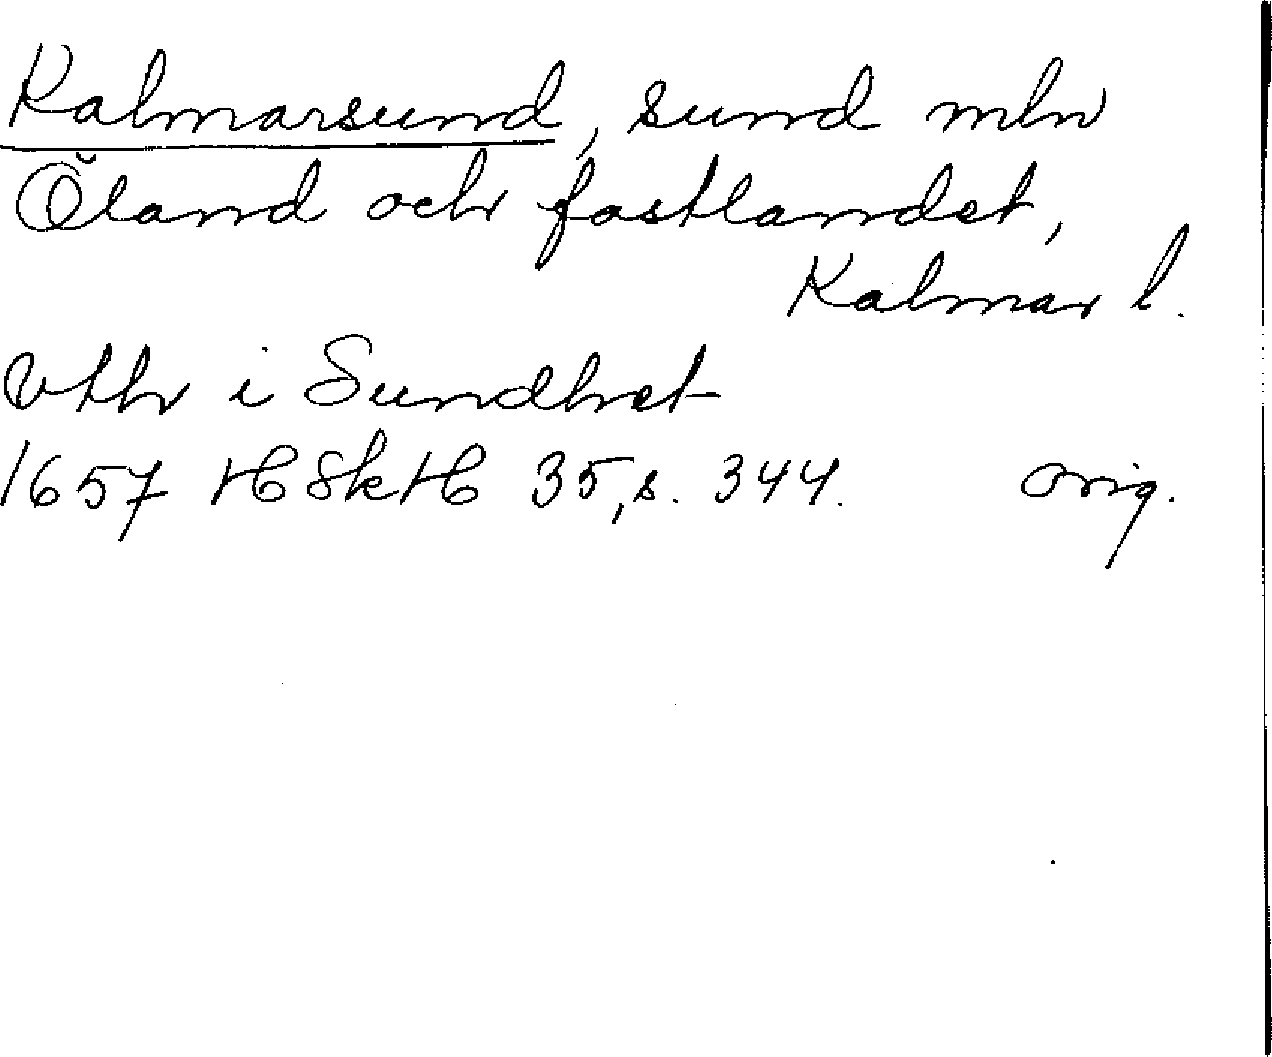 Kalmarsund, sund mln
Öland och fastlandet,
Kalmar l.
Vthr i Sundhet
1657 HSkH 35, s. 344. orig.